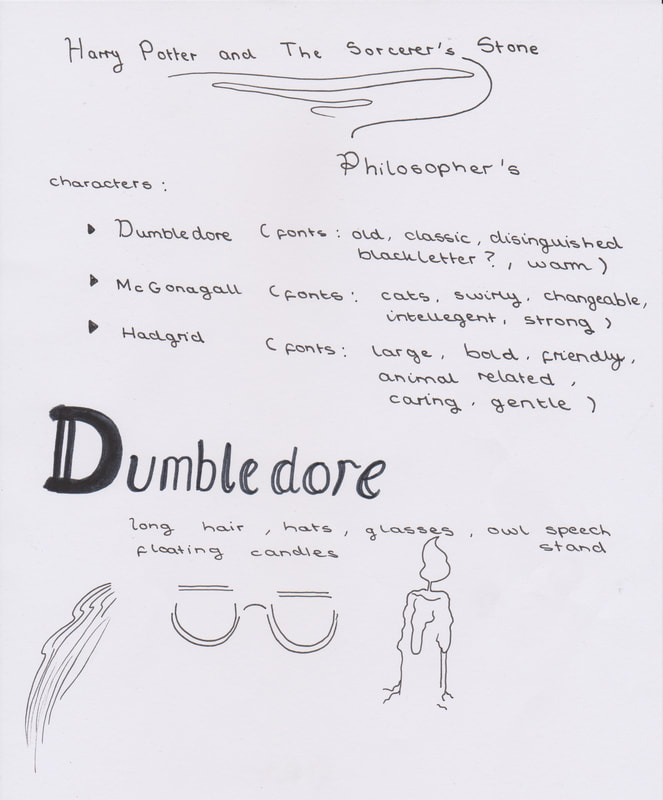 Harry Potter and The Sorcerer's Stone
Philosopher's
characters :
Dumbledore ( fonts : old, classic, disinguished
blackletter ? , warm )
McGonagall ( fonts : cats, swirly, changeable,
intellegent, strong )
Hadgrid ( fonts : large, bold, friendly,
animal related ,
caring, gentle )
Dumbledore
long hair , hats , glasses , owl speech
floating candles stand